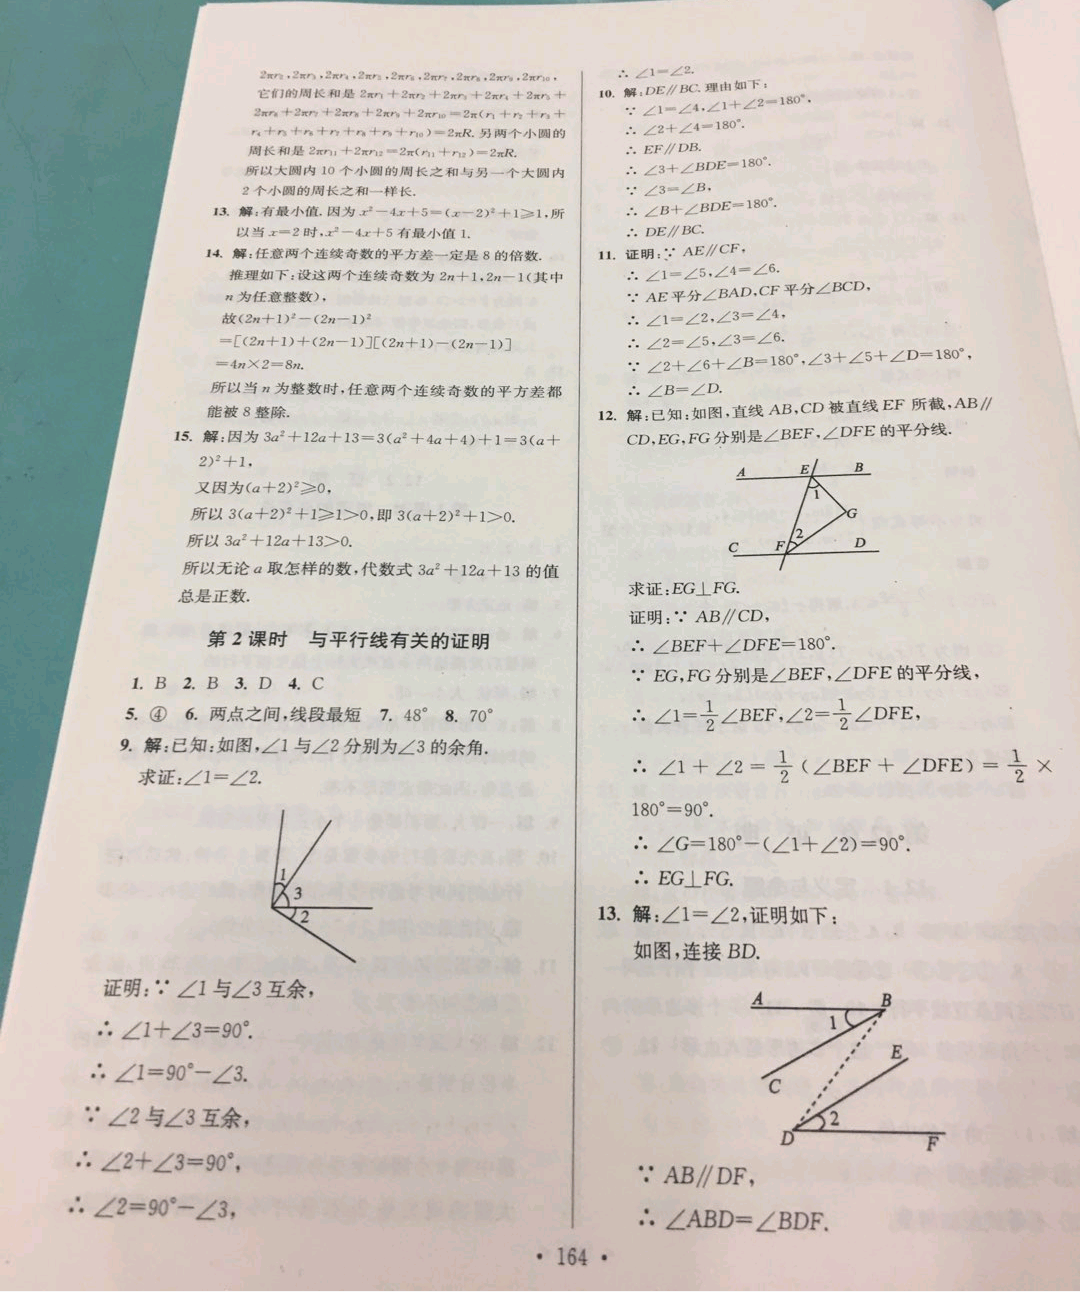 2πr₂,2πr₃,2πr₄,2πr₅,2πr₆,2πr₇,2πr₈,2πr₉,2πr₁₀,
它们的周长和是 2πr₁+2πr₂+2πr₃+2πr₄+2πr₅+
2πr₆+2πr₇+2πr₈+2πr₉+2πr₁₀=2π(r₁+r₂+r₃+
r₄+r₅+r₆+r₇+r₈+r₉+r₁₀)=2πR.另两个小圆的
周长和是 2πr₁₁+2πr₁₂=2π(r₁₁+r₁₂)=2πR.
所以大圆内 10 个小圆的周长之和与另一个大圆内
2 个小圆的周长之和一样长.
13. 解:有最小值.因为 x²-4x+5=(x-2)²+1≥1,所
以当 x=2 时,x²-4x+5 有最小值 1.
14. 解:任意两个连续奇数的平方差一定是 8 的倍数.
推理如下:设这两个连续奇数为 2n+1,2n-1(其中
n 为任意整数),
故(2n+1)²-(2n-1)²
=[(2n+1)+(2n-1)][(2n+1)-(2n-1)]
=4n×2=8n.
所以当 n 为整数时,任意两个连续奇数的平方差都
能被 8 整除.
15. 解:因为 3a²+12a+13=3(a²+4a+4)+1=3(a+
2)²+1,
又因为(a+2)²≥0,
所以 3(a+2)²+1≥1>0,即 3(a+2)²+1>0.
所以 3a²+12a+13>0.
所以无论 a 取怎样的数,代数式 3a²+12a+13 的值
总是正数.
第 2 课时 与平行线有关的证明
1. B 2. B 3. D 4. C
5. ④ 6. 两点之间,线段最短 7. 48° 8. 70°
9. 解:已知:如图,∠1 与∠2 分别为∠3 的余角.
求证:∠1=∠2.
1
3
2
证明:∵ ∠1 与∠3 互余,
∴ ∠1+∠3=90°.
∴ ∠1=90°-∠3.
∵ ∠2 与∠3 互余,
∴ ∠2+∠3=90°,
∴ ∠2=90°-∠3,
∴ ∠1=∠2.
10. 解:DE∥BC.理由如下:
∵ ∠1=∠4,∠1+∠2=180°,
∴ ∠2+∠4=180°.
∴ EF∥DB.
∴ ∠3+∠BDE=180°.
∵ ∠3=∠B,
∴ ∠B+∠BDE=180°.
∴ DE∥BC.
11. 证明:∵ AE∥CF,
∴ ∠1=∠5,∠4=∠6.
∵ AE 平分∠BAD,CF 平分∠BCD,
∴ ∠1=∠2,∠3=∠4,
∴ ∠2=∠5,∠3=∠6.
∵ ∠2+∠6+∠B=180°,∠3+∠5+∠D=180°,
∴ ∠B=∠D.
12. 解:已知:如图,直线 AB,CD 被直线 EF 所截,AB∥
CD,EG,FG 分别是∠BEF,∠DFE 的平分线.
A E B
1
G
2
C F D
求证:EG⊥FG.
证明:∵ AB∥CD,
∴ ∠BEF+∠DFE=180°.
∵ EG,FG 分别是∠BEF,∠DFE 的平分线,
∴ ∠1=1/2∠BEF,∠2=1/2∠DFE,
∴ ∠1+∠2=1/2(∠BEF+∠DFE)=1/2×
180°=90°.
∴ ∠G=180°-(∠1+∠2)=90°.
∴ EG⊥FG.
13. 解:∠1=∠2,证明如下:
如图,连接 BD.
A B
1
E
C
2
D F
∵ AB∥DF,
∴ ∠ABD=∠BDF.
· 164 ·